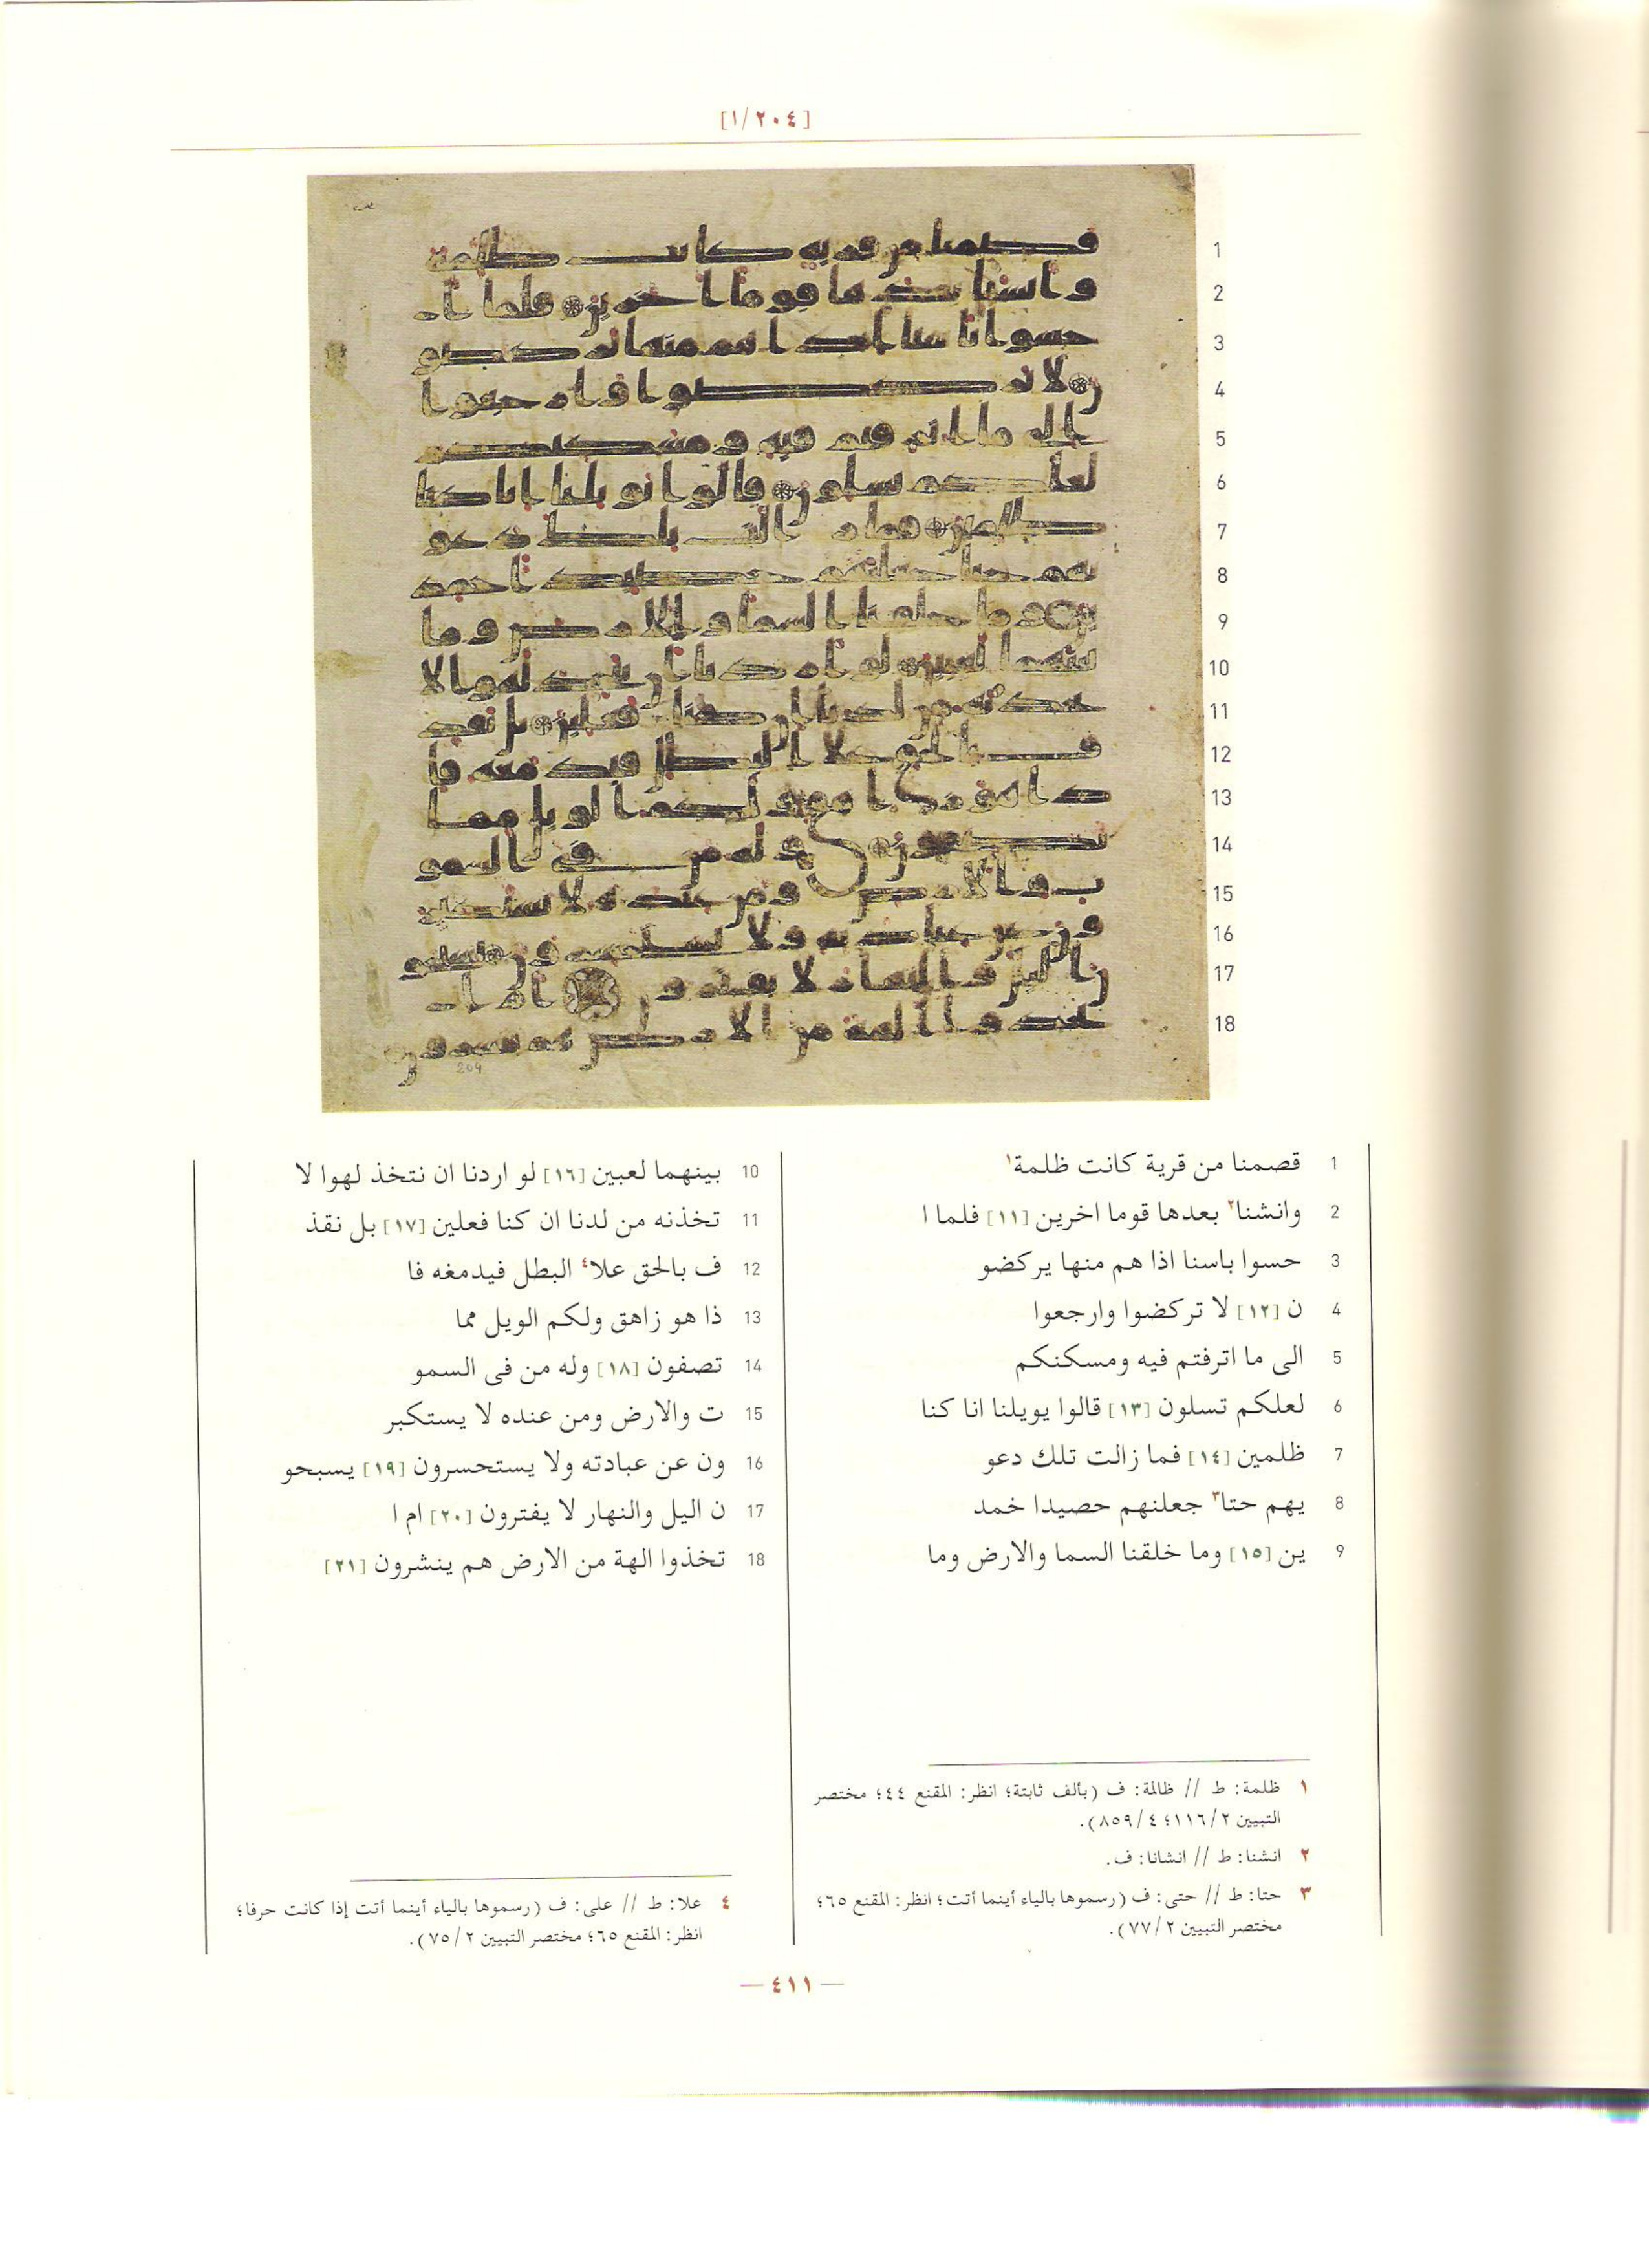 [١/٢٠٤]
1
2
3
4
5
6
7
8
9
10
11
12
13
14
15
16
17
18
204
1 قصمنا من قرية كانت ظلمة١
2 وانشنا٢ بعدها قوما اخرين [١١] فلما ا
3 حسوا باسنا اذا هم منها يركضو
4 ن [١٢] لا تركضوا وارجعوا
5 الى ما اترفتم فيه ومسكنكم
6 لعلكم تسلون [١٣] قالوا يويلنا انا كنا
7 ظلمين [١٤] فما زالت تلك دعو
8 يهم حتا٣ جعلنهم حصيدا خمد
9 ين [١٥] وما خلقنا السما والارض وما
10 بينهما لعبين [١٦] لو اردنا ان نتخذ لهوا لا
11 تخذنه من لدنا ان كنا فعلين [١٧] بل نقذ
12 ف بالحق علا٤ البطل فيدمغه فا
13 ذا هو زاهق ولكم الويل مما
14 تصفون [١٨] وله من فى السمو
15 ت والارض ومن عنده لا يستكبر
16 ون عن عبادته ولا يستحسرون [١٩] يسبحو
17 ن اليل والنهار لا يفترون [٢٠] ام ا
18 تخذوا الهة من الارض هم ينشرون [٢١]
١ ظلمة: ط // ظالمة: ف (بألف ثابتة؛ انظر: المقنع ٤٤؛ مختصر
التبيين ١١٦/٢؛ ٨٥٩/٤).
٢ انشنا: ط // انشانا: ف.
٣ حتا: ط // حتى: ف (رسموها بالياء أينما أتت؛ انظر: المقنع ٦٥؛
مختصر التبيين ٧٧/٢).
٤ علا: ط // على: ف (رسموها بالياء أينما أتت إذا كانت حرفا؛
انظر: المقنع ٦٥؛ مختصر التبيين ٧٥/٢).
— ٤١١ —